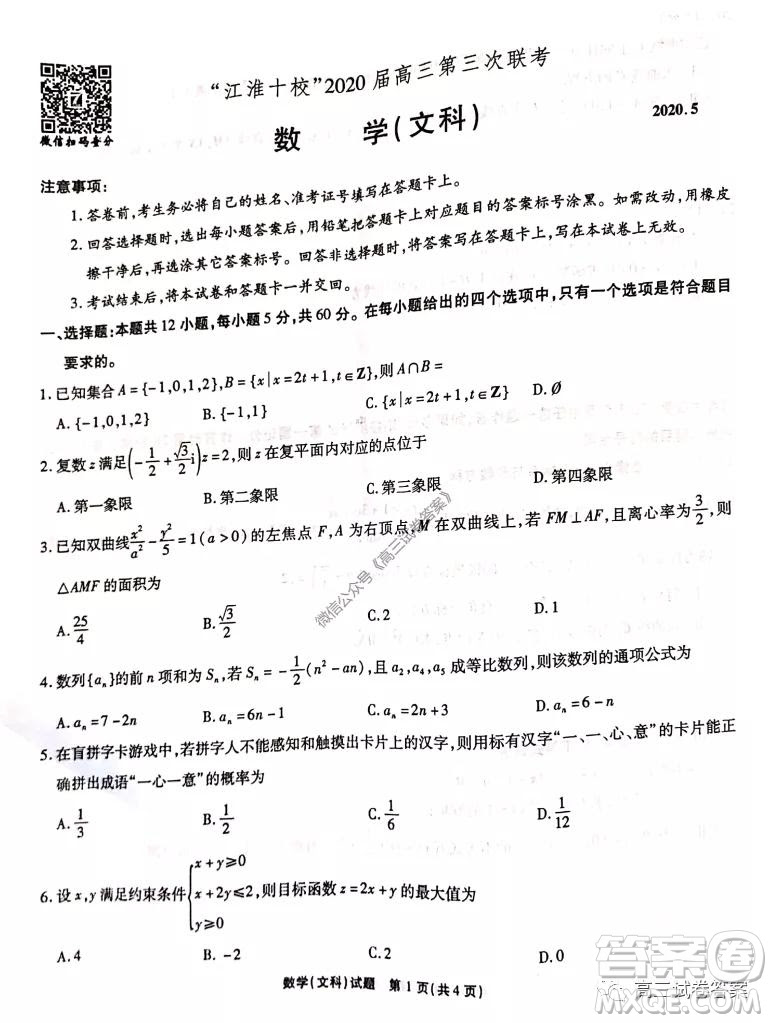 微信扫码查分
“江淮十校”2020届高三第三次联考
数 学(文科)
2020.5
注意事项:
1. 答卷前,考生务必将自己的姓名、准考证号填写在答题卡上。
2. 回答选择题时,选出每小题答案后,用铅笔把答题卡上对应题目的答案标号涂黑。如需改动,用橡皮
擦干净后,再选涂其它答案标号。回答非选择题时,将答案写在答题卡上,写在本试卷上无效。
3. 考试结束后,将本试卷和答题卡一并交回。
一、选择题:本题共12小题,每小题5分,共60分。在每小题给出的四个选项中,只有一个选项是符合题目
要求的。
1. 已知集合A={-1,0,1,2},B={x|x=2t+1,t∈Z},则A∩B=
A. {-1,0,1,2} B. {-1,1} C. {x|x=2t+1,t∈Z} D. Ø
2. 复数z满足(-1/2+√3/2 i)z=2,则z在复平面内对应的点位于
A. 第一象限 B. 第二象限 C. 第三象限 D. 第四象限
3. 已知双曲线x²/a²-y²/5=1(a>0)的左焦点F,A为右顶点,M在双曲线上,若FM⊥AF,且离心率为3/2,则
△AMF的面积为
A. 25/4 B. √3/2 C. 2 D. 1
4. 数列{aₙ}的前n项和为Sₙ,若Sₙ=-1/2(n²-an),且a₂,a₄,a₅成等比数列,则该数列的通项公式为
A. aₙ=7-2n B. aₙ=6n-1 C. aₙ=2n+3 D. aₙ=6-n
5. 在盲拼字卡游戏中,若拼字人不能感知和触摸出卡片上的汉字,则用标有汉字“一、一、心、意”的卡片能正
确拼出成语“一心一意”的概率为
A. 1/3 B. 1/2 C. 1/6 D. 1/12
6. 设x,y满足约束条件{x+y≥0 x+2y≤2 y≥0,则目标函数z=2x+y的最大值为
A. 4 B. -2 C. 2 D. 0
数学(文科)试题 第1页(共4页)
微信公众号《高三试卷答案》
答案圈
高三试卷答案